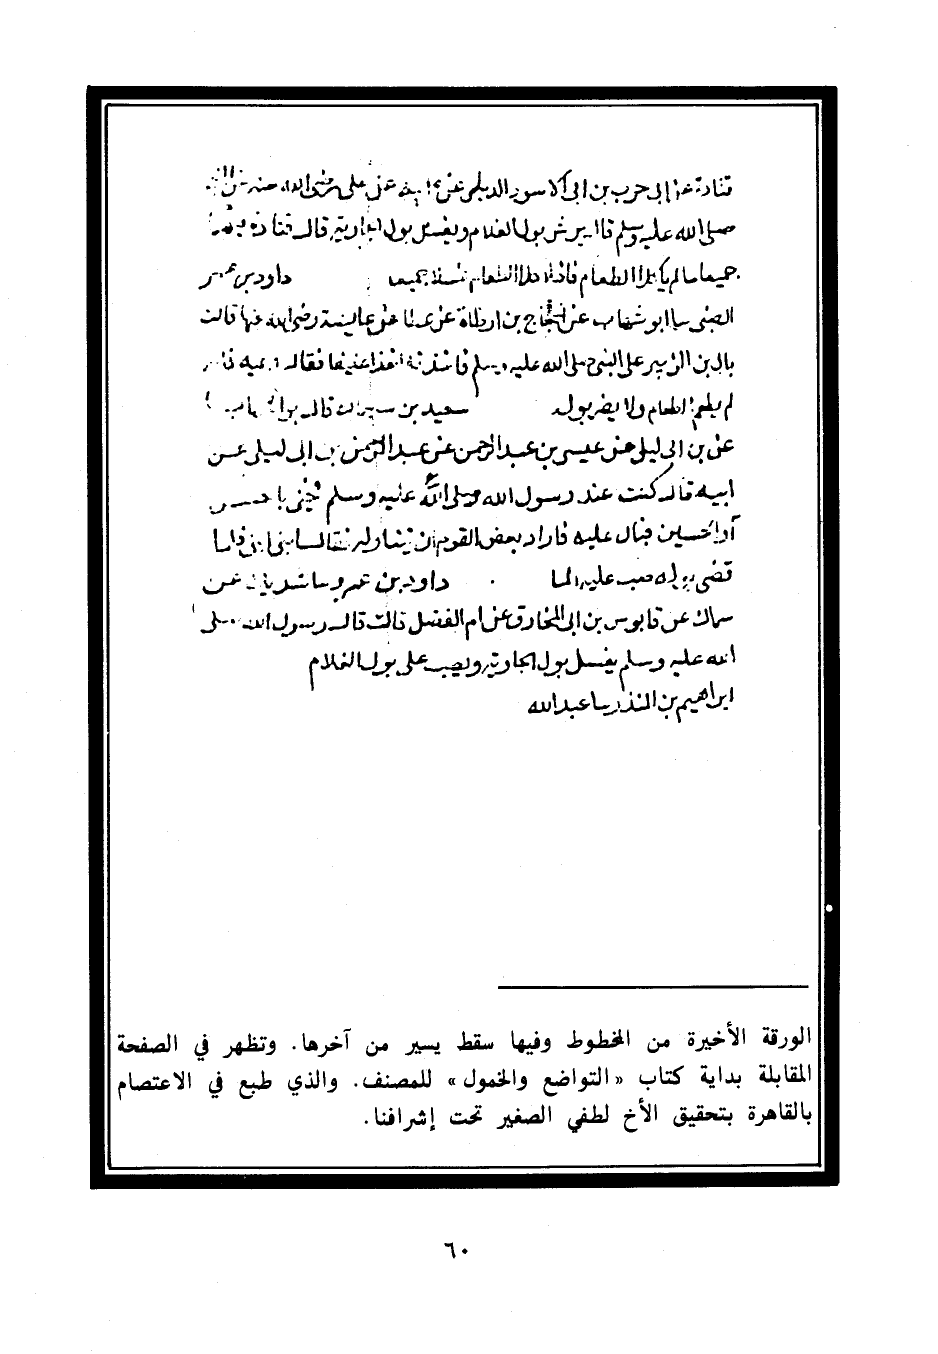 قتادة عن ابى حرب بن ابى الاسود الديلمى عن ابيه عن على رضى الله عنه عن النبى
صلى الله عليه وسلم قال يرش بول الغلام ويغسل بول الجارية قال قتادة
جميعا ما لم ياكلا الطعام فاذا اكلا الطعام غسلا جميعا داود بن عمر
الضبى سا ابو شهاب عن الحجاج بن ارطاة عن عطا عن عايشة رضى الله عنها قالت
بال بن الزبير على النبى صلى الله عليه وسلم فاخذته اخذا عنيفا فقال دعيه فانه
لم يطعم الطعام ولا يضر بوله سعيد بن قال
عن بن ابى ليلى عن عيسى بن عبد الرحمن عن عبد الرحمن بن ابى ليلى عن
ابيه قال كنت عند رسول الله صلى الله عليه وسلم
او الحسين فبال عليه فاراد بعض القوم ان يتناوله فقال ابنى ابنى فلما
قضى بوله صب عليه الما داود بن عمرو سا شريك عن
سماك عن قابوس بن ابى المخارق عن ام الفضل قالت قال رسول الله صلى
الله عليه وسلم يغسل بول الجارية ويصب على بول الغلام
ابراهيم بن المنذر سا عبد الله
الورقة الأخيرة من المخطوط وفيها سقط يسير من آخرها. وتظهر في الصفحة
المقابلة بداية كتاب «التواضع والخمول» للمصنف. والذي طبع في الاعتصام
بالقاهرة بتحقيق الأخ لطفي الصغير تحت إشرافنا.
٦٠